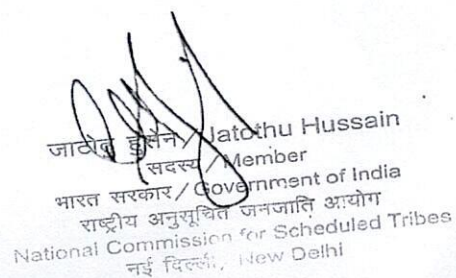 जाटोथु हुसैन / Jatothu Hussain
सदस्य / Member
भारत सरकार / Government of India
राष्ट्रीय अनुसूचित जनजाति आयोग
National Commission for Scheduled Tribes
नई दिल्ली / New Delhi